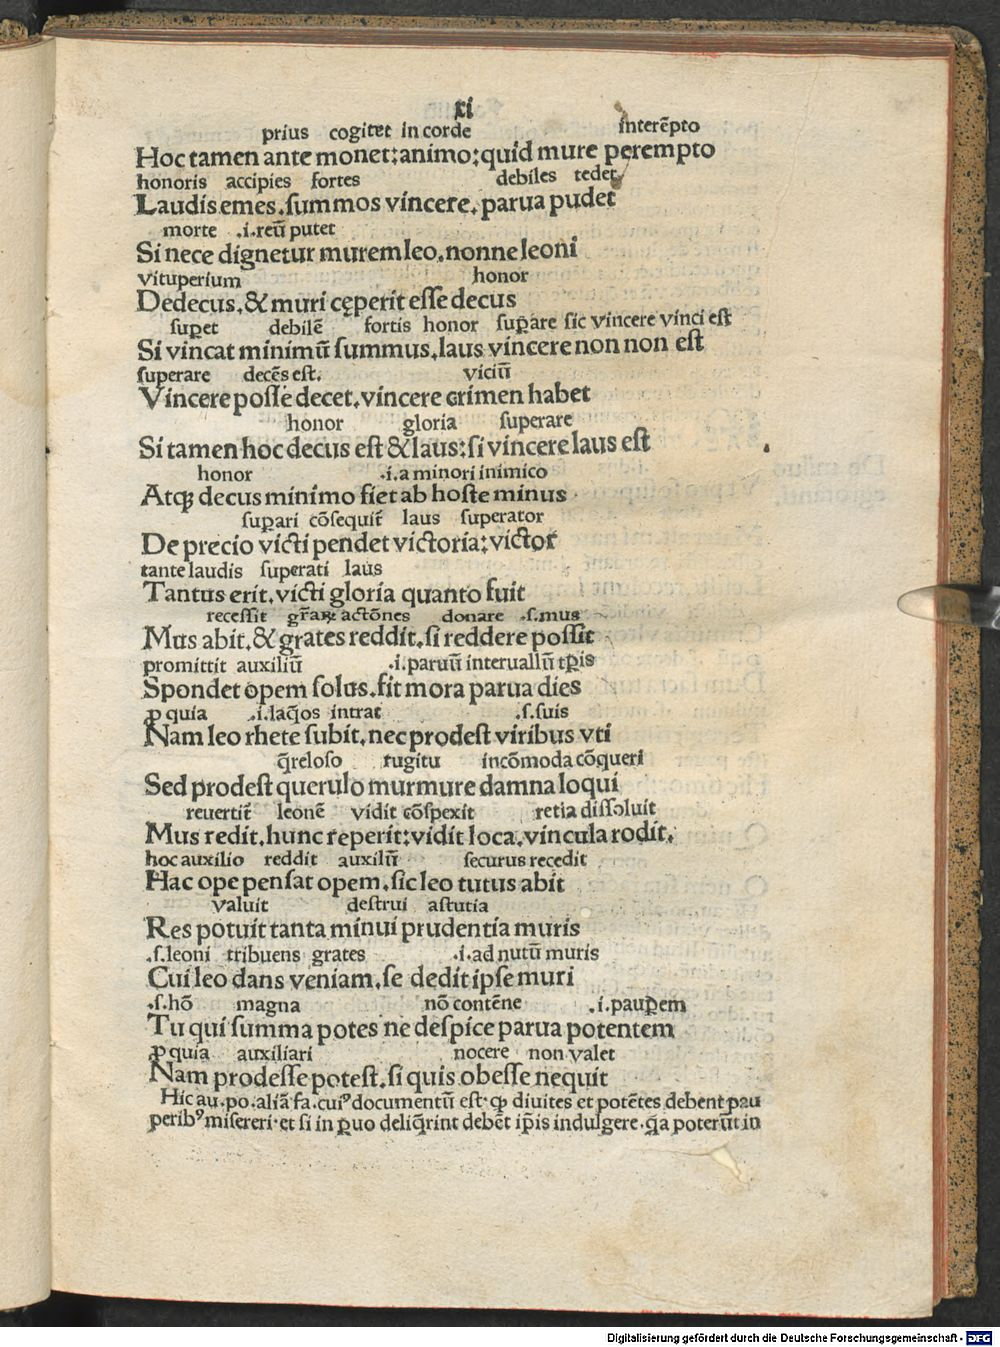 xi
prius cogitet in corde interēpto
Hoc tamen ante monet: animo: quid mure perempto
honoris accipies fortes debiles tedet
Laudis emes. ſummos vincere. parua pudet
morte .i. reū putet
Si nece dignetur murem leo. nonne leoni
vituperium honor
Dedecus. & muri cęperit eſſe decus
suꝑet debilē fortis honor suꝑare sic vincere vinci eſt
Si vincat minimū ſummus. laus vincere non non eſt
superare decēs eſt. viciū
Vincere poſſe decet. vincere crimen habet
honor gloria superare
Si tamen hoc decus eſt & laus: ſi vincere laus eſt
honor .i. a minori inimico
Atqꝫ decus minimo fiet ab hoſte minus
suꝑari cōſequit᷑ laus superator
De precio victi pendet victoria: victor
tante laudis superati laus
Tantus erit. victi gloria quanto fuit
receſſit gr̄aꝝ actōnes donare .ſ. mus
Mus abit. & grates reddit. ſi reddere poſſit
promittit auxiliū .i. paruū interuallū tꝑis
Spondet opem ſolus. fit mora parua dies
ꝓ quia .i. laq̄os intrat .ſ. suis
Nam leo rhete ſubit. nec prodeſt viribus vti
q̄reloso rugitu incōmoda cōqueri
Sed prodeſt querulo murmure damna loqui
reuertit᷑ leonē vidit cōſpexit retia diſſoluit
Mus redit. hunc reperit: vidit loca. vincula rodit.
hoc auxilio reddit auxiliū securus recedit
Hac ope penſat opem. ſic leo tutus abit
valuit deſtrui aſtutia
Res potuit tanta minui prudentia muris
.ſ. leoni tribuens grates .i. ad nutū muris
Cui leo dans veniam. ſe dedit ipſe muri
.ſ. hō magna nō contēne .i. pauꝑem
Tu qui ſumma potes ne deſpice parua potentem
ꝓ quia auxiliari nocere non valet
Nam prodeſſe poteſt. ſi quis obeſſe nequit
Hic au. po. aliā fa. cuiꝰ documentū eſt· ꝙ diuites et potētes debent pau
peribꝰ miſereri· et ſi in ꝑuo deliq̄rint debēt ip̄is indulgere. q̄a poterūt in
Digitalisierung gefördert durch die Deutsche Forschungsgemeinschaft - DFG